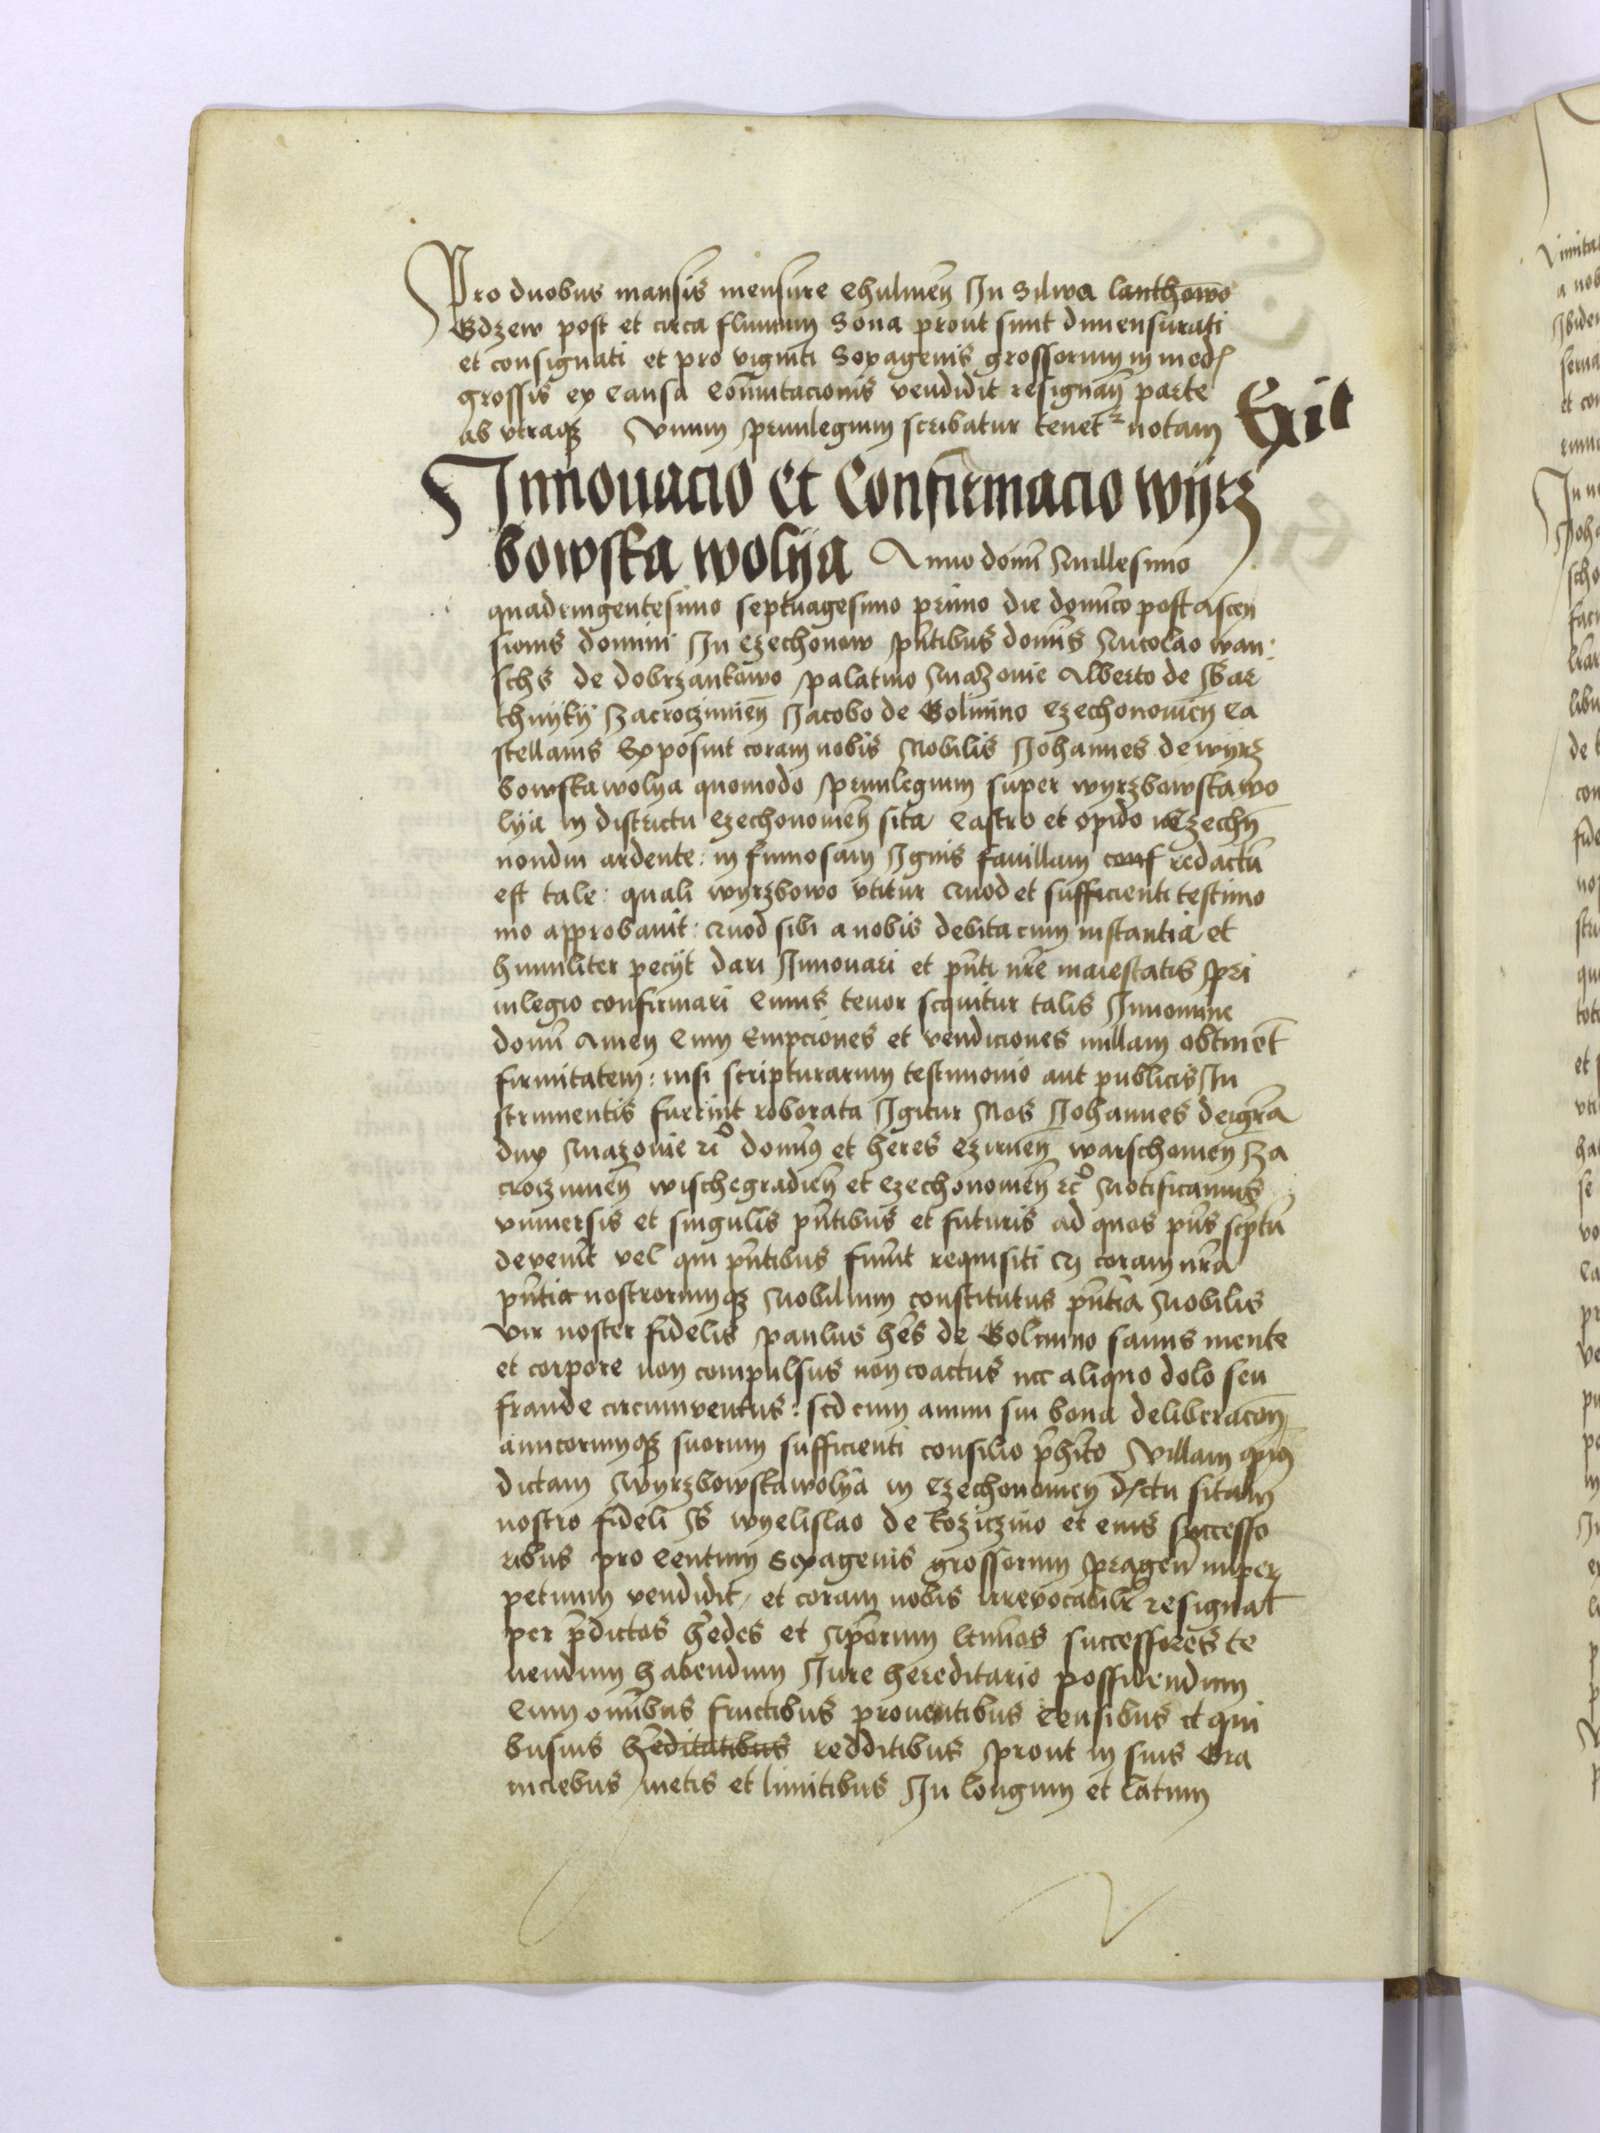 Pro duobus mansis mensure Chulmen̄ In Silwa lanthowo
Gdzew post et circa fluuium Sona prout sunt dimensurati
et consignati et pro viginti Sexagenis grossorum in mod
grossis ex causa Cōmutacionis vendidit resignan̄ parte
ab vtraqꝫ Vnum priuilegium scribatur tenet notam Exit
Innouacio et Confirmacio wijrz
bowska wolija Anno domī Millesimo
quadringentesimo septuagesimo primo die domīco post ascen
sionis domini In Czechonow pn̄tibus domīs Nicolao wan
schs de dobrzankowo palatino Mazouie Alberto de Bar
thnijky Zacroczimien̄ Jacobo de Golimino Czechonouien̄ Ca
stellanis Exposuit coram nobis Nobilis Johannes de wyrz
bowska wolya quomodo priuilegium super wyrzbowska wo
lya in districtu Czechonouien̄ sita Castro et opido in Czechn̄
nondiu ardente: in fumosam Ignis fauillam conf redactū
est tale: quali wyrzbowo vtitur Quod et sufficienti testimo
nio approbauit: Quod sibi a nobis debita cum instantia et
humiliter pecijt dari Innouari et pn̄ti nr̄e maiestatis pri
uilegio confirmari Cuius tenor sequitur talis In nomine
domī Amen Cum Empciones et vendiciones nullam obtinen̄t
firmitatem: nisi scripturarum testimonio aut publicis In
strumentis fuerint roborata Igitur Nos Johannes dei grā
dux Mazouie rc̄ domīus et heres Czirnen̄ warschouien̄ Za
croczimien̄ wischegradien̄ et Czechonouien̄ rc̄ Notificamus
vniuersis et singulis pn̄tibus et futuris ad quos pn̄s scptū
deuen̄it vel qui pn̄tibus fuerīt requisiti Qꝫ coram nrā
pn̄tia nostrorumqꝫ Nobilium constitutus pn̄tia Nobilis
vir noster fidelis Paulus hēs de Golimino sanus mente
et corpore non compulsus non coactus nec aliquo dolo seu
fraude circumuentus: sed cum animi sui bona deliberacōn̄
amicorumqꝫ suorum sufficienti consilio p̄hīto Villam
dictam Wyrzbowska wolya in Czechonouien̄ dctu sitam
nostro fideli S wyelislao de koziczino et eius successo
ribus pro Centum Sexagenis grossorum pragen̄ inper
petuum vendidit et coram nobis irreuocabilr̄ resignat
per p̄dictos hēdes et ip̄orum lt̄imos successores te
nendum habendum Jure hereditario possidendum
Cum om̄ibus fructibus prouentibus Censibus et qui
busuis h̶e̶d̶i̶t̶a̶t̶i̶b̶u̶s̶ redditibus prout in suis Gra
niciebus metis et limitibus In longum et latum